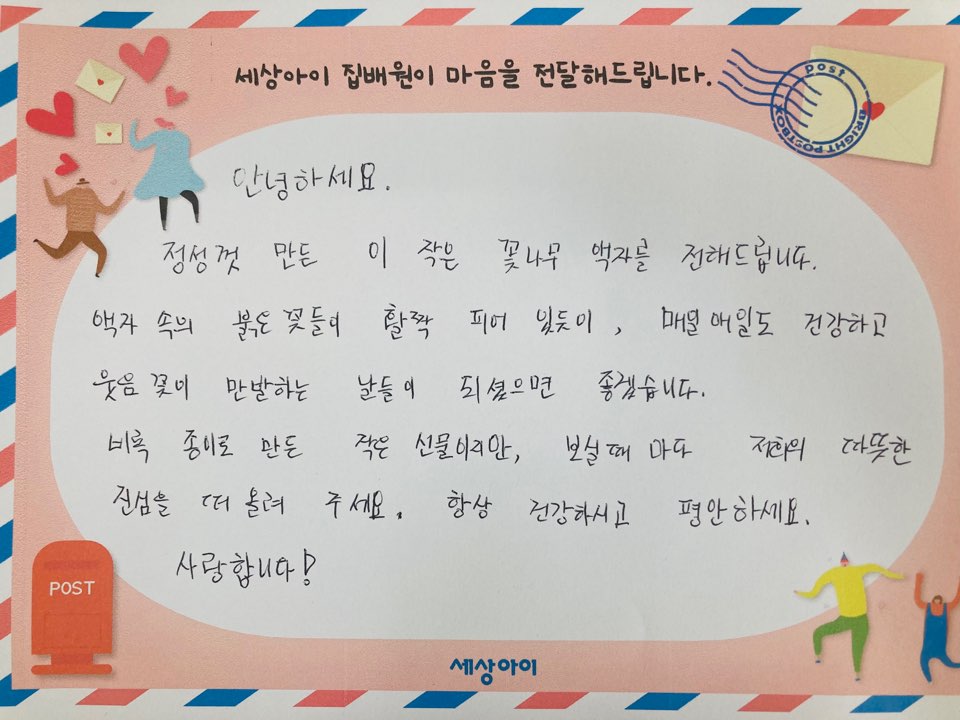 세상아이 집배원이 마음을 전달해드립니다.
post
BRIGHT POSTBOX
안녕하세요.
정성껏 만든 이 작은 꽃나무 액자를 전해드립니다.
액자 속의 붉은 꽃들이 활짝 피어 있듯이, 매일매일도 건강하고
웃음 꽃이 만발하는 날들이 되셨으면 좋겠습니다.
비록 종이로 만든 작은 선물이지만, 보실 때 마다 저희의 따뜻한
진심을 떠 올려 주세요. 항상 건강하시고 평안하세요.
사랑합니다!
POST
세상아이